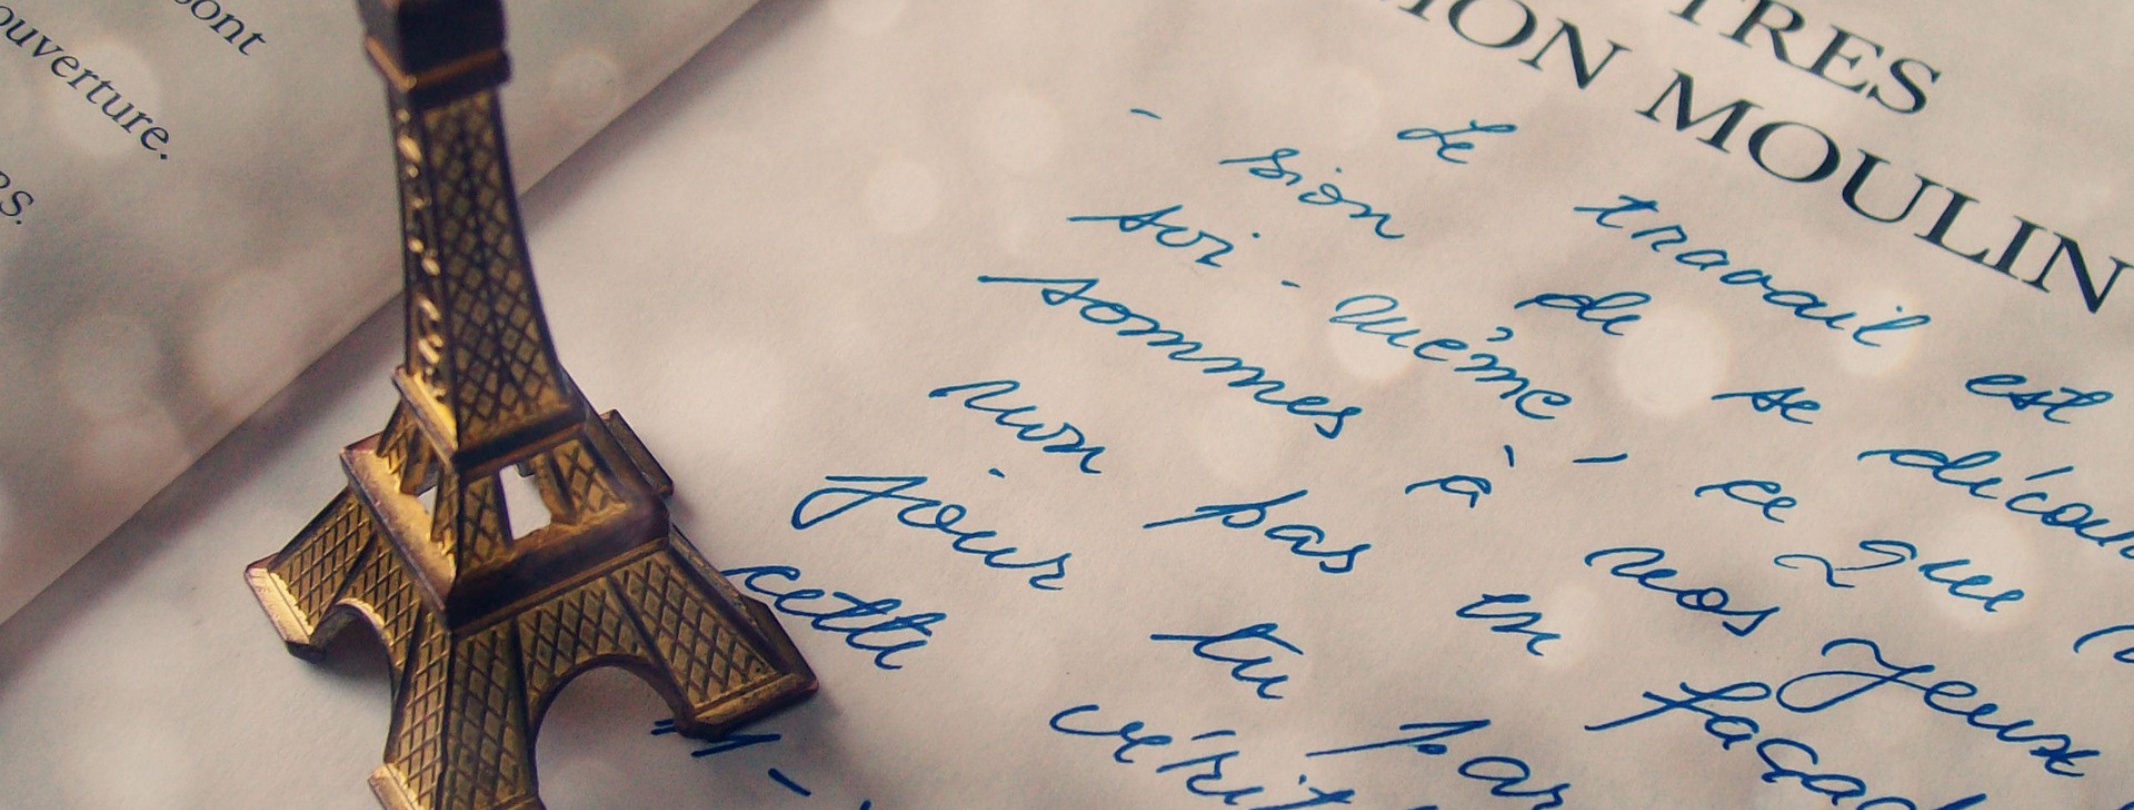 sont
ouverture.
RS.
TRES
MON MOULIN
- Le travail est
sion de se décou
soi-même, ce que
sommes à nos yeux
non pas en façad
jour tu par
cette vérit